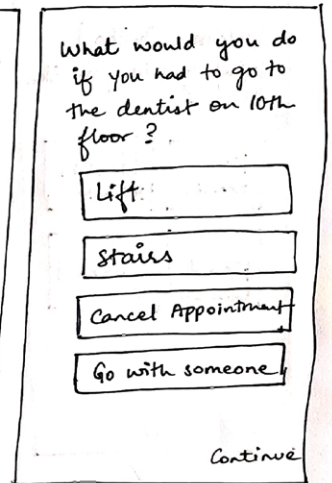 What would you do
if you had to go to
the dentist on 10th
floor ?
Lift
Stairs
Cancel Appointment
Go with someone
Continue